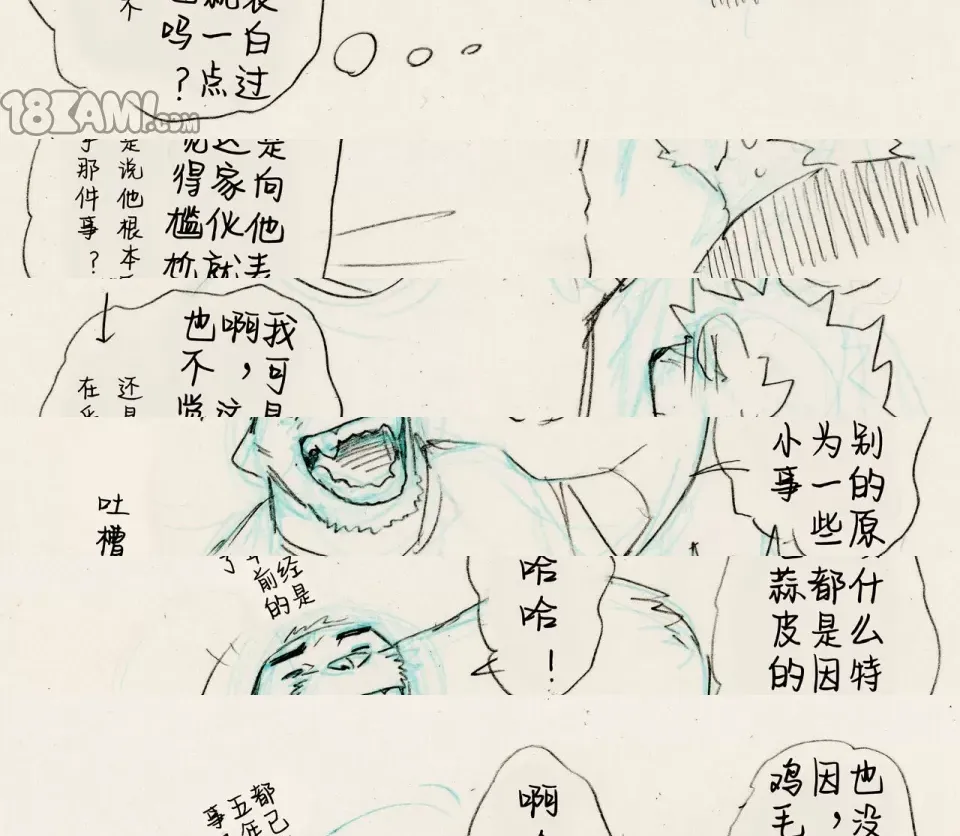 也没什么特别的原
因，都是因为一些
鸡毛蒜皮的小事
啊哈哈哈！
都已经是
五年前的
事了
吐槽
我可是向他表白过
啊，这家伙就一点
也不觉得尴尬吗？
还是说他根本不
在乎那件事？
18KAMI.com